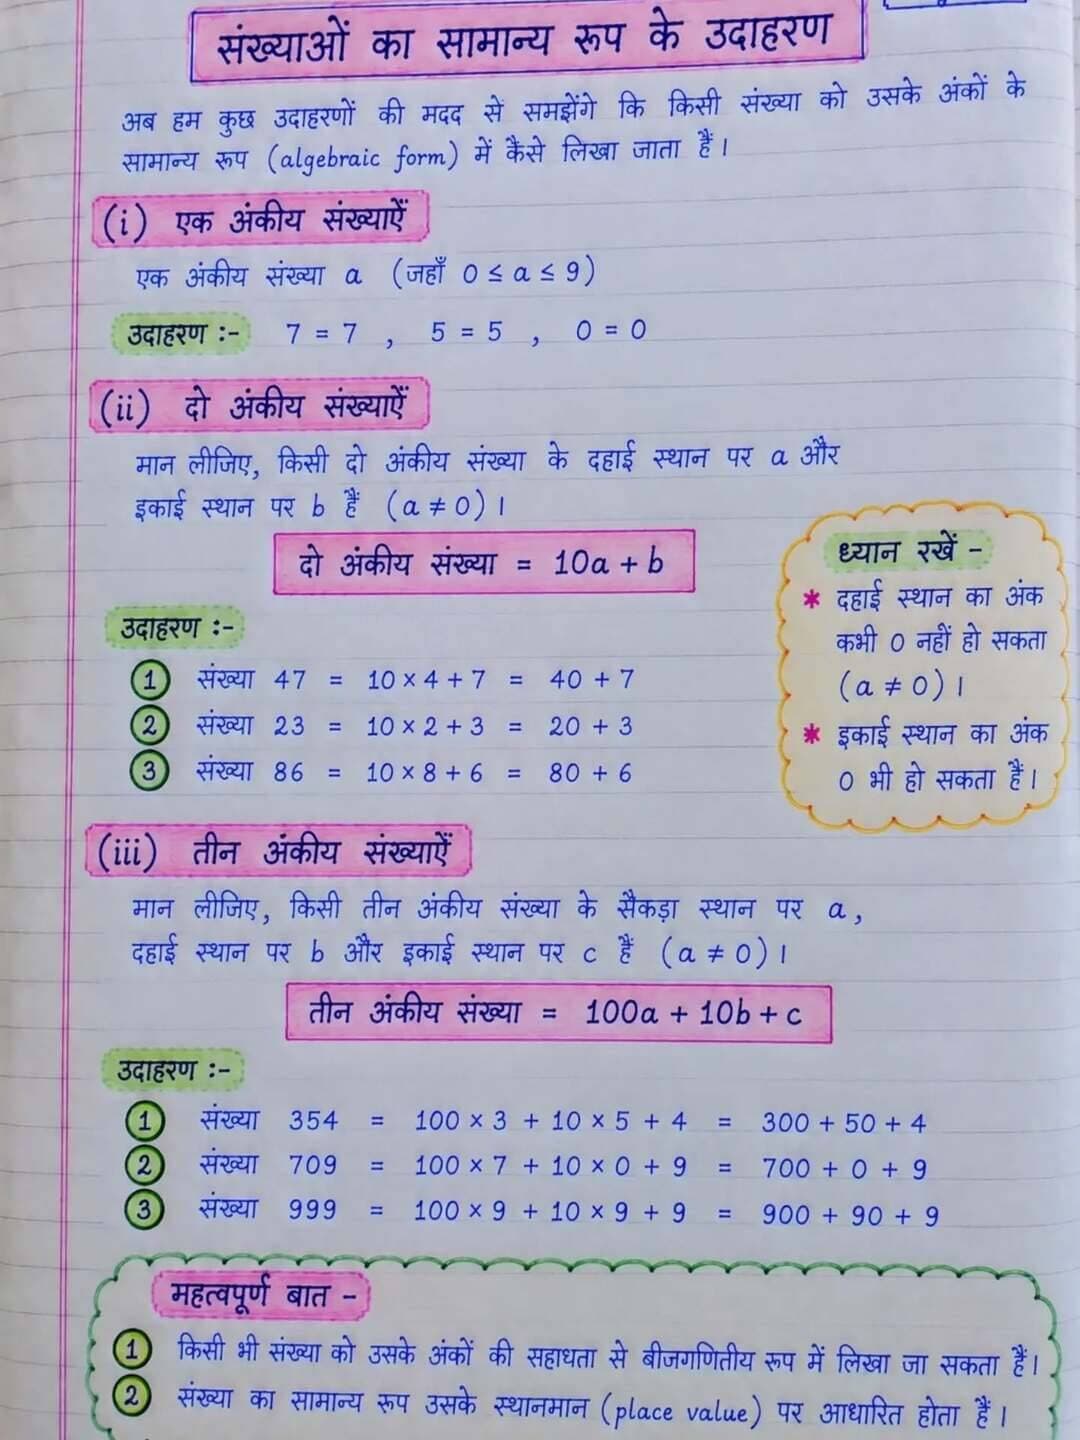 संख्याओं का सामान्य रूप के उदाहरण
अब हम कुछ उदाहरणों की मदद से समझेंगे कि किसी संख्या को उसके अंकों के
सामान्य रूप (algebraic form) में कैसे लिखा जाता हैं।
(i) एक अंकीय संख्याऐं
एक अंकीय संख्या a (जहाँ 0 ≤ a ≤ 9)
उदाहरण :- 7 = 7 , 5 = 5 , 0 = 0
(ii) दो अंकीय संख्याऐं
मान लीजिए, किसी दो अंकीय संख्या के दहाई स्थान पर a और
इकाई स्थान पर b हैं (a ≠ 0)।
दो अंकीय संख्या = 10a + b
उदाहरण :-
1 संख्या 47 = 10 × 4 + 7 = 40 + 7
2 संख्या 23 = 10 × 2 + 3 = 20 + 3
3 संख्या 86 = 10 × 8 + 6 = 80 + 6
ध्यान रखें -
* दहाई स्थान का अंक
कभी 0 नहीं हो सकता
(a ≠ 0)।
* इकाई स्थान का अंक
0 भी हो सकता हैं।
(iii) तीन अंकीय संख्याऐं
मान लीजिए, किसी तीन अंकीय संख्या के सैकड़ा स्थान पर a,
दहाई स्थान पर b और इकाई स्थान पर c हैं (a ≠ 0)।
तीन अंकीय संख्या = 100a + 10b + c
उदाहरण :-
1 संख्या 354 = 100 × 3 + 10 × 5 + 4 = 300 + 50 + 4
2 संख्या 709 = 100 × 7 + 10 × 0 + 9 = 700 + 0 + 9
3 संख्या 999 = 100 × 9 + 10 × 9 + 9 = 900 + 90 + 9
महत्वपूर्ण बात -
1 किसी भी संख्या को उसके अंकों की सहाधता से बीजगणितीय रूप में लिखा जा सकता हैं।
2 संख्या का सामान्य रूप उसके स्थानमान (place value) पर आधारित होता हैं।